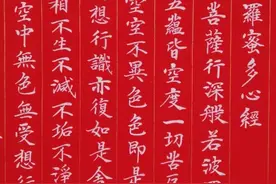 羅蜜多心經
菩薩行深般若波
五蘊皆空度一切苦厄
空空不異色色即是
想行識亦復如是舍
相不生不滅不垢不淨
空中無色無受想行